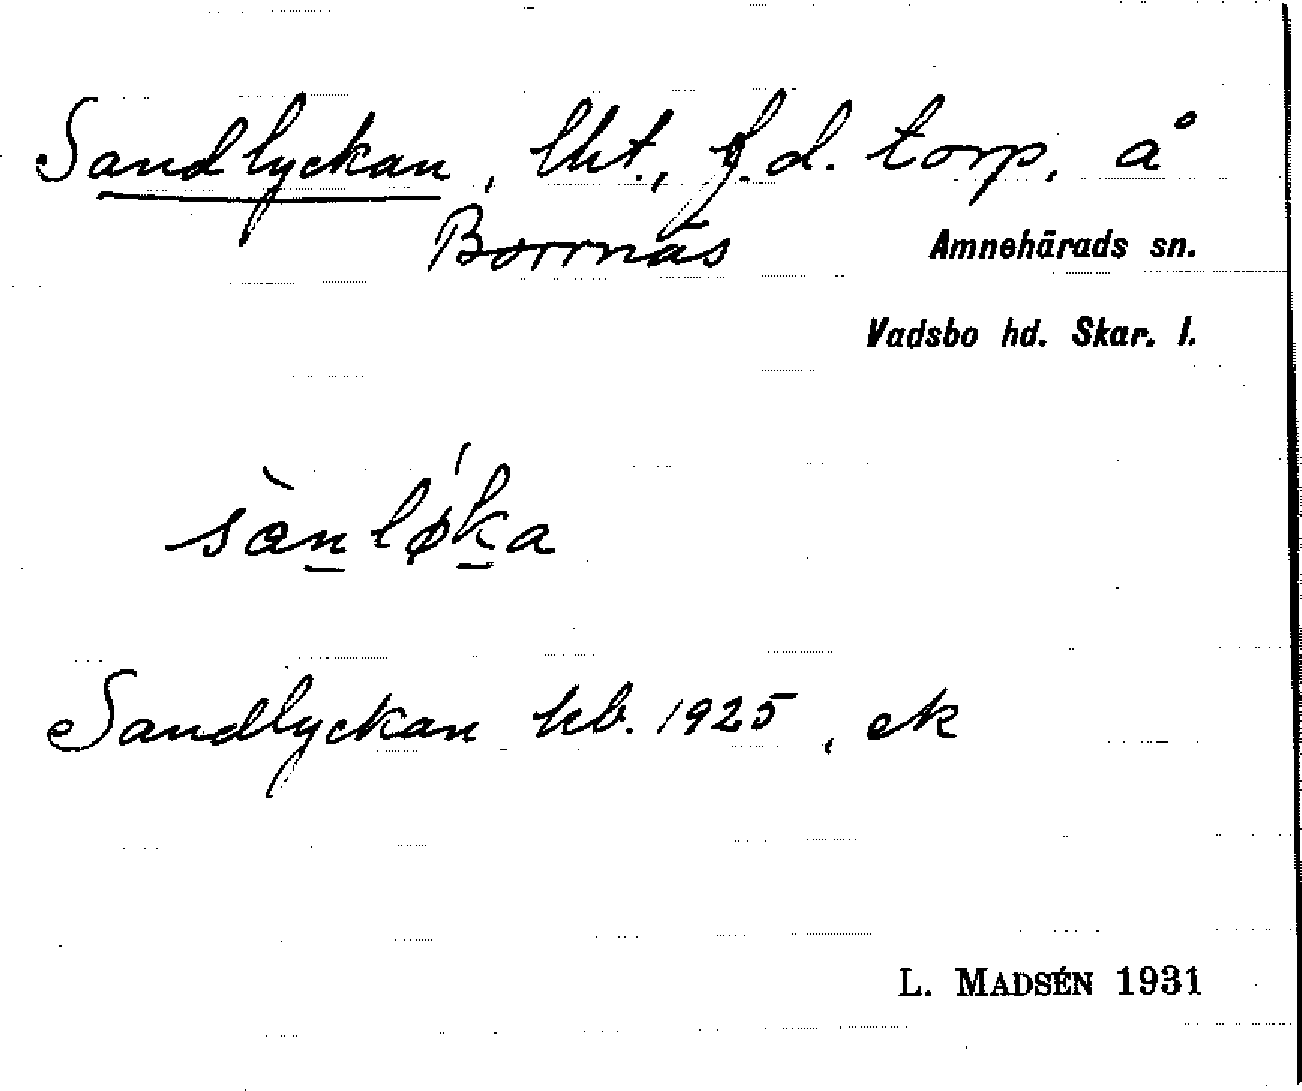 Sandlyckan, lht., f.d. torp, å
Borrnäs
Amnehärads sn.
Vadsbo hd. Skar. l.
sànlǿka
Sandlyckan kb. 1925, ek
L. MADSÉN 1931